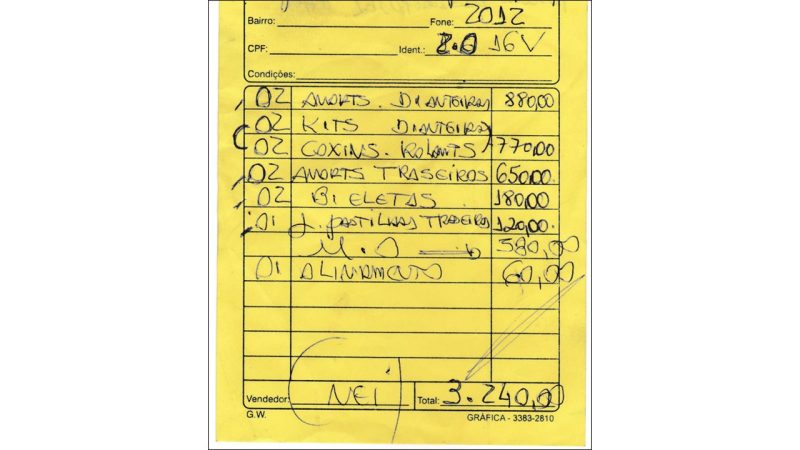 Bairro: Fone: 2012
CPF: Ident.: 2.0 16V
Condições:
02 AMORTS. DIANTEIROS 880,00
02 KITS DIANTEIROS
02 COXINS. ROLAMTS 770,00
02 AMORTS TRASEIROS 650,00
02 BIELETAS 180,00
01 J. PASTILHAS TRASEIRA 120,00
M.O 580,00
01 ALINAMENTO 60,00
Vendedor: NEI Total: 3.240,00
G.W. GRÁFICA - 3383-2810